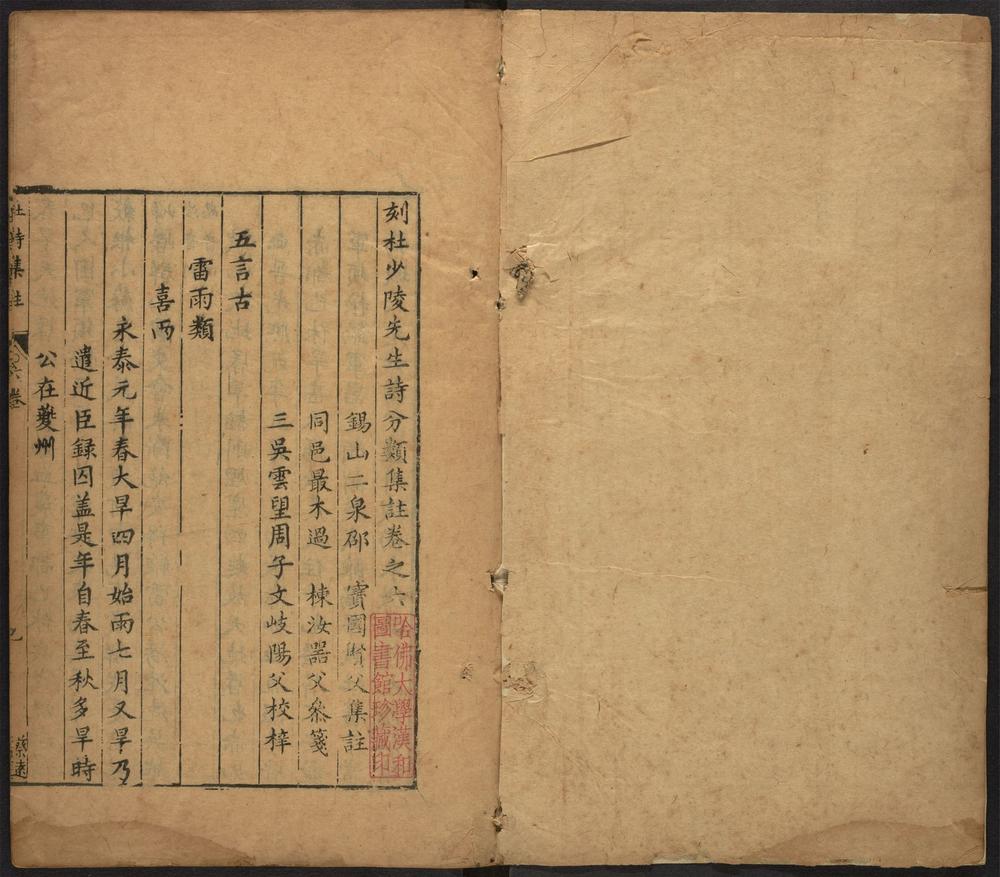 刻杜少陵先生詩分類集註卷之六
錫山二泉邵 寶國賢父集註
同邑最木過 棟汝器父叅箋
三吳雲望周子文岐陽父校梓
五言古
雷雨類
喜雨
永泰元年春大旱四月始雨七月又旱乃
遣近臣録囚盖是年自春至秋多旱時
公在夔州
杜詩集註 卷六
蔡達
哈佛大學漢和
圖書館珍藏印